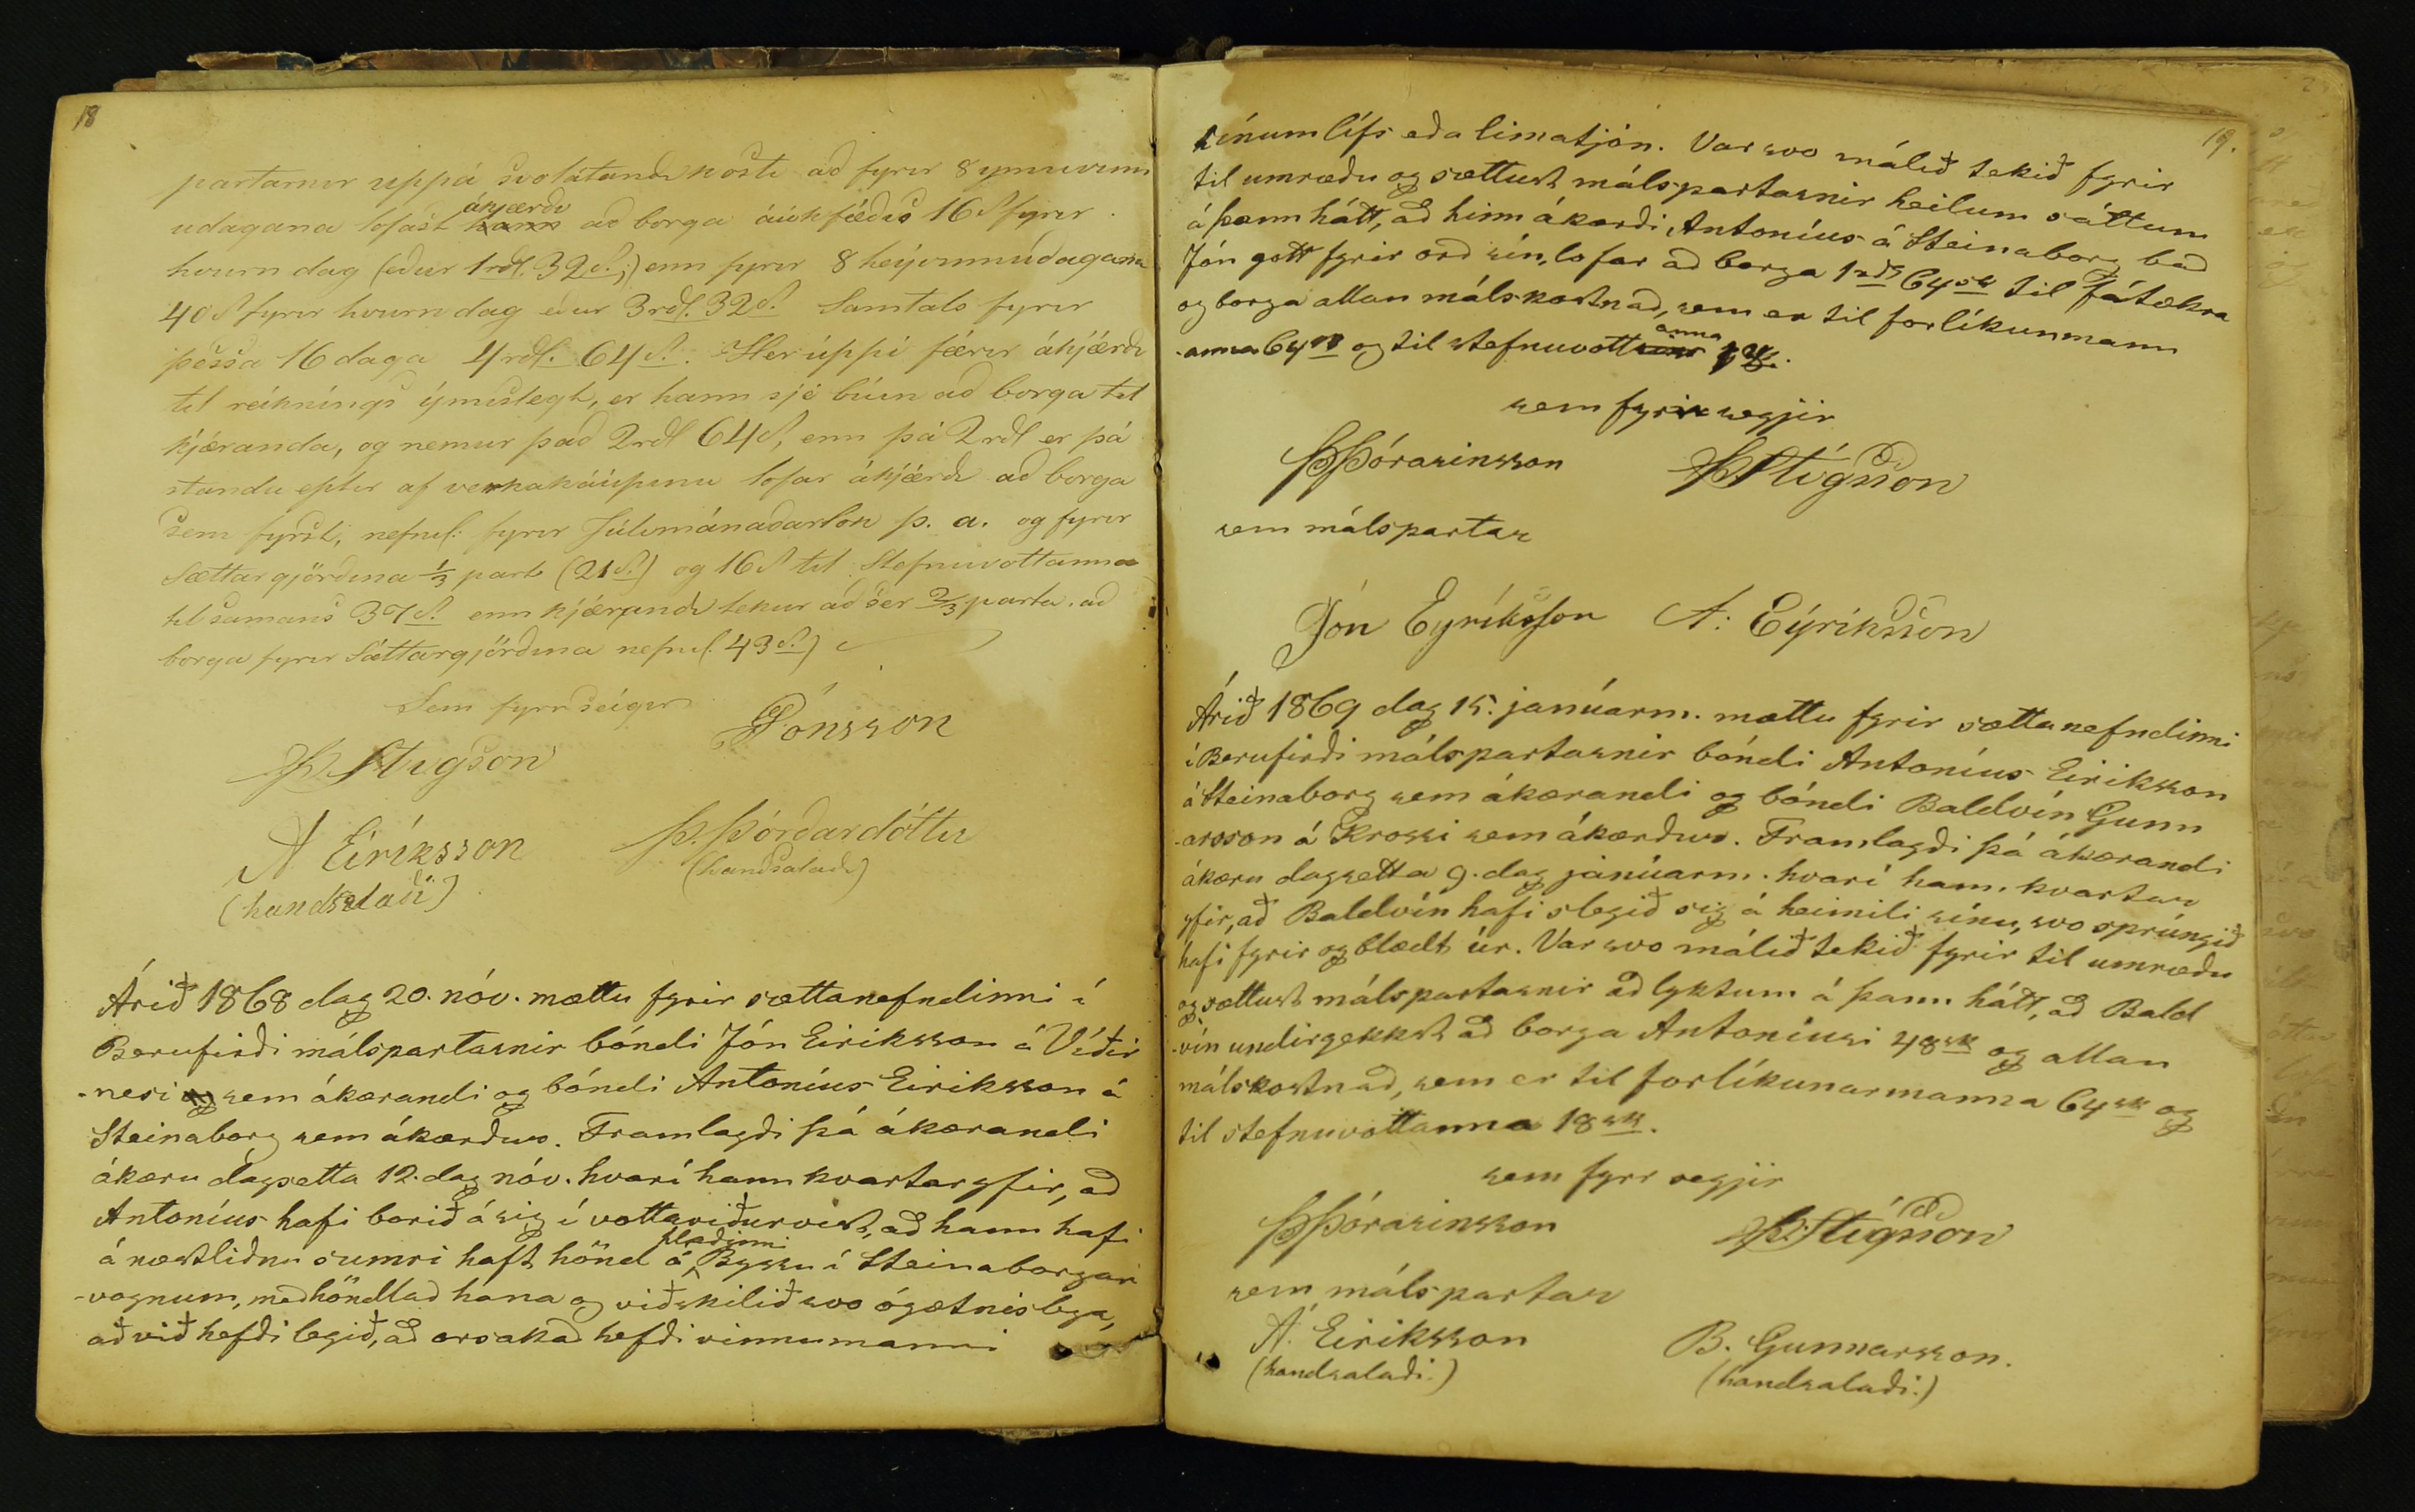 18
partarnir uppá svolátandi kosti að fyrir 8 ynnuvinnu
udagana lofast ákjærði að borga auk fæðis 16 S fyrir
hvurn dag (eður 1rdl. 32 S.;) enn fyrir 8 heyvinnudagana
40 S fyrir hvurn dag eður 3rdl. 32 S. Samtals fyrir
þessa 16 daga 4rdl. 64 S. Her uppí færir ákjærði
til reiknings ýmislegt, er hann sjé búin að borga til
kjæranda, og nemur það 2rdl 64 S, enn þá 2rdl er þá
standa eptir af verkakaupinu lofar ákjærði að borga
sem fyrst, nefnil: fyrir Júlímánaðarlok þ. a. og fyrir
Sættargjörðina 1/3 part (21 S.) og 16 S til Stefnuvottanna
til samans 37 S. enn kjærandi tekur að sér 2/3 parta að
borga fyrir Sáttargjörðina nefnil. 43 S.)
Sem fyrr seigir
Jónsson
Þ Stígson
A Eiríksson
(handsalaði)
Þ. Þórðardóttir
(handsalaði)
Árið 1868 dag 20. nóv. mættu fyrir sættanefndinni í
Berufirði málspartarnir bóndi Jón Eiriksson á Víðir
-nesi sem ákærandi og bóndi Antoníus Eiriksson á
Steinaborg sem ákærður. Framlagði þá ákærandi
ákæru dagsetta 12. dag nóv. hvarí hann kvartar yfir, að
Antoníus hafi borið á sig í vottaviðurvist, að hann hafi
á næstliðnu sumri haft hönd á hlaðinni Byssu í Steinaborgar
-vognum, meðhöndlað hana og viðskilið svo ógætnislega,
að við hefði legið, að orsakað hefði vinnumanni
19.
sínum lífs eða limatjón. Var svo málið tekið fyrir
til umræðu og sættust málspartarnir heilum sáttum
á þann hátt, að hinn ákærði, Antoníus á Steinaborg bað
Jón gott fyrir orð sín, lofar að borga 1rdl 64sk til fátækra
og borga allan málskostnað, sem er til forlíkunmann
-anna 64sk og til stefnuvottanna
sem fyrir segjir
ÞÞórarinsson
Þ Stígsson
sem málspartar
Jón Eyríksson
A: Eýriksson
Árið 1869 dag 15. janúarm. mættu fyrir sættanefndinni
í Berufirði málspartarnir bóndi Antoníus Eiriksson
á Steinaborg sem ákærandi og bóndi Baldvín Gunn
-arsson á Krossi sem ákærður. Framlagði þá ákærandi
ákæru dagsetta 9. dag janúarm. hvarí hann kvartar
yfir, að Baldvín hafi slegið sig á heimili sínu, svo sprúngið
hafi fyrir og blædt úr. Var svo málið tekið fyrir til umræðu
og sættust málspartarnir að lyktum á þann hátt, að Bald
-vín undirgekkst að borga Antoníusi 48sk og allan
málskostnað, sem er til forlíkunarmanna 64sk og
til stefnuvottanna 18sk.
sem fyrr segjir
ÞÞórarinsson
Þ. Stígsson
sem málspartar
A. Eiriksson
(handsalaði.)
B. Gunnarsson.
(handsalaði.)